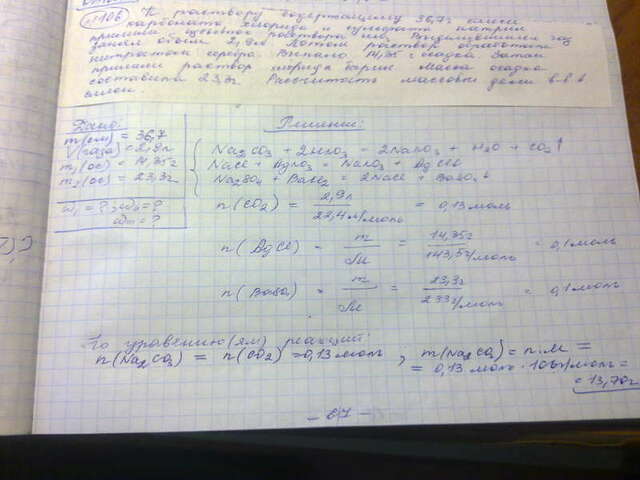 №106 К раствору содержащему 36,7г смеси
карбоната хлорида и сульфата натрия
прилили избыток раствора HNO₃. Выделившийся газ
занял объем 2,9л Потом раствор обработали
нитратом серебра. Выпало 14,35 г осадка. Затем
прилили раствор нитрата бария Масса осадка
составила 23,3г Рассчитать массовые доли в-в в
смеси.
Дано:
Решение:
m(см) = 36,7
V(газа) = 2,9л
m₁(ос) = 14,35г
m₂(ос) = 23,3г
ω₁ = ? ω₂ = ?
ω₃ = ?
Na₂CO₃ + 2HNO₃ = 2NaNO₃ + H₂O + CO₂↑
NaCl + AgNO₃ = NaNO₃ + AgCl↓
Na₂SO₄ + BaCl₂ = 2NaCl + BaSO₄↓
n(CO₂) = 2,9л / 22,4л/моль = 0,13моль
n(AgCl) = m / M = 14,35г / 143,5г/моль = 0,1моль
n(BaSO₄) = m / M = 23,3г / 233г/моль = 0,1моль
По уравнению(ям) реакций:
n(Na₂CO₃) = n(CO₂) = 0,13моль, m(Na₂CO₃) = n·M =
= 0,13 моль · 106г/моль =
= 13,70г
- 67 -